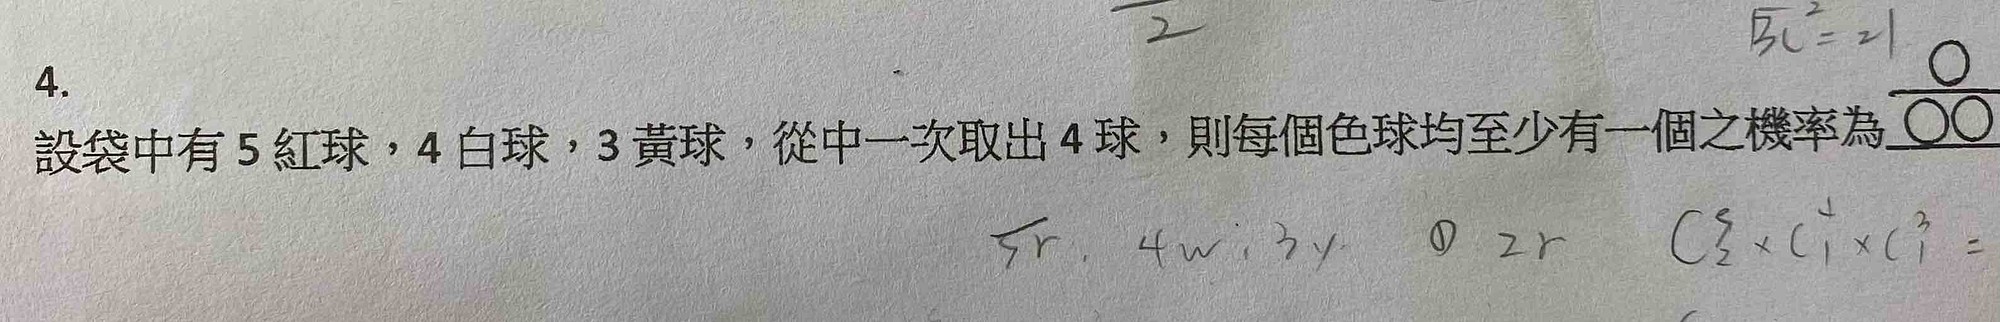 2
4.
設袋中有 5 紅球，4 白球，3 黃球，從中一次取出 4 球，則每個色球均至少有一個之機率為 ○/○○
5r. 4w. 3y. ① 2r C⁵₂ × C⁴₁ × C³₁ =